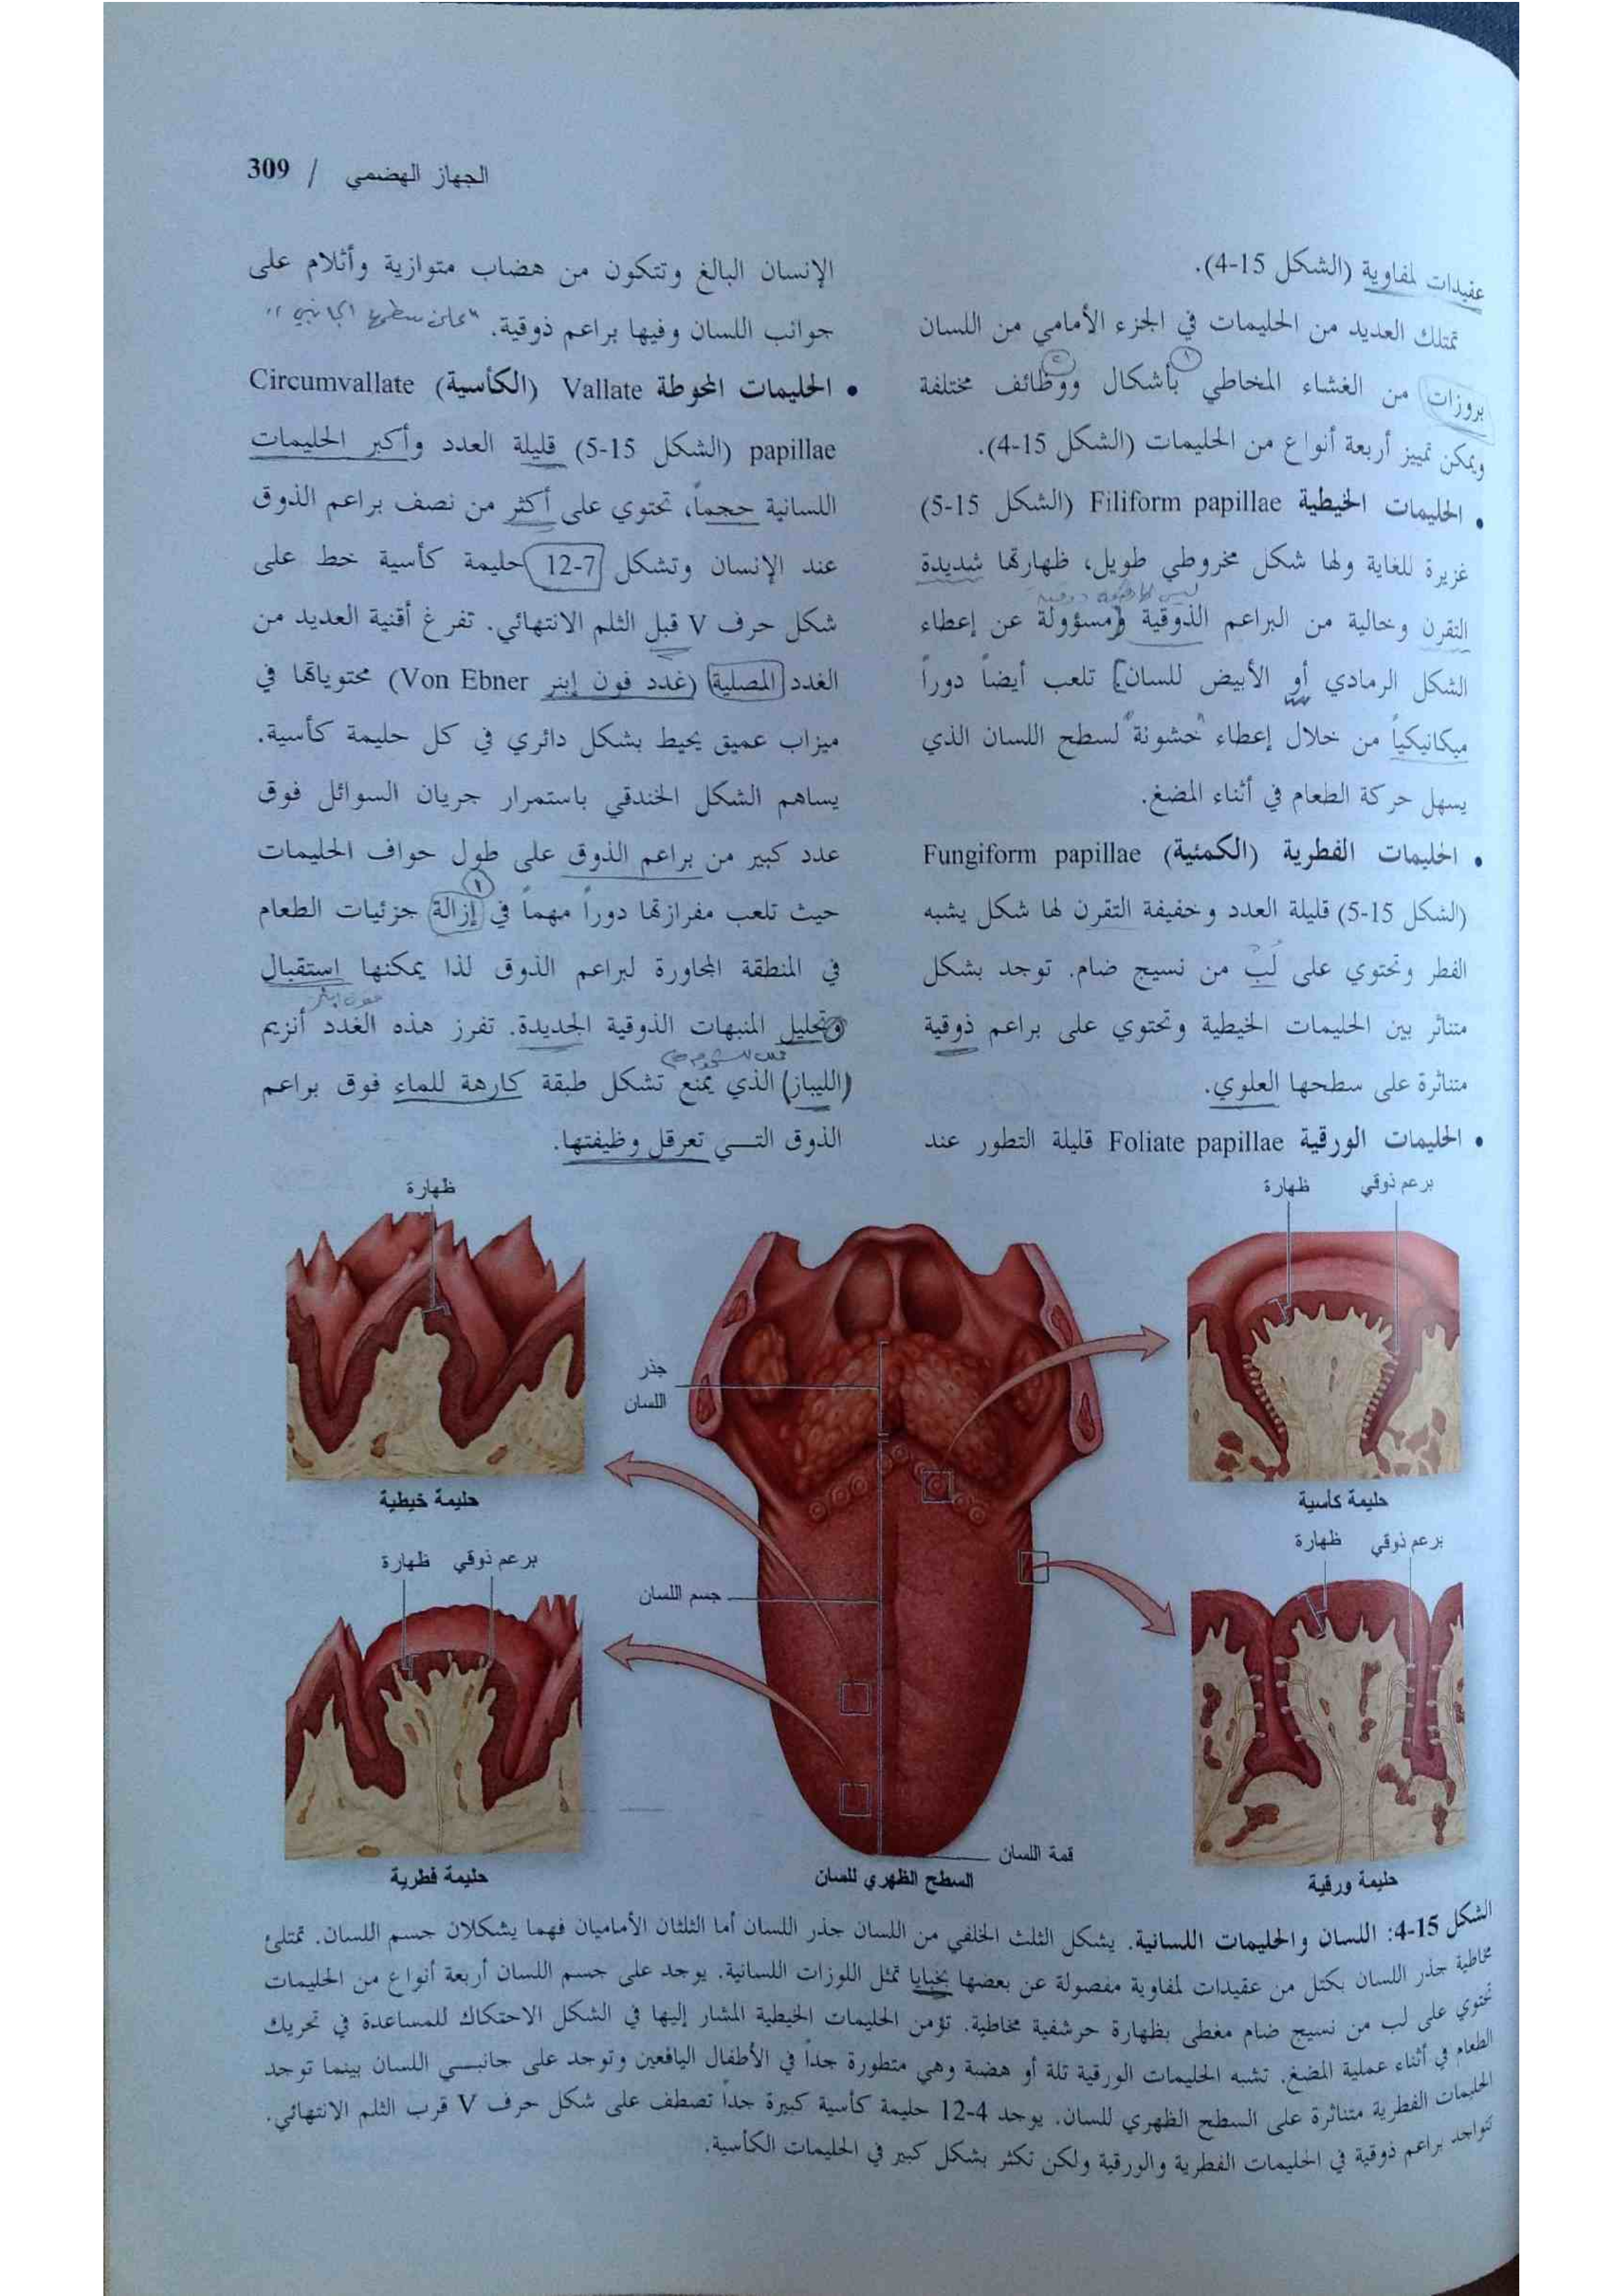 الجهاز الهضمي / 309
عقيدات لمفاوية (الشكل 15-4).
تمتلك العديد من الحليمات في الجزء الأمامي من اللسان
بروزات من الغشاء المخاطي بأشكال ووظائف مختلفة
ويمكن تمييز أربعة أنواع من الحليمات (الشكل 15-4).
• الحليمات الخيطية Filiform papillae (الشكل 15-5)
غزيرة للغاية ولها شكل مخروطي طويل، ظهارتها شديدة
التقرن وخالية من البراعم الذوقية ومسؤولة عن إعطاء
الشكل الرمادي أو الأبيض للسان. تلعب أيضاً دوراً
ميكانيكياً من خلال إعطاء "خشونة" لسطح اللسان الذي
يسهل حركة الطعام في أثناء المضغ.
• الحليمات الفطرية (الكمئية) Fungiform papillae
(الشكل 15-5) قليلة العدد وخفيفة التقرن لها شكل يشبه
الفطر وتحتوي على لب من نسيج ضام. توجد بشكل
متناثر بين الحليمات الخيطية وتحتوي على براعم ذوقية
متناثرة على سطحها العلوي.
• الحليمات الورقية Foliate papillae قليلة التطور عند
الإنسان البالغ وتتكون من هضاب متوازية وأثلام على
جوانب اللسان وفيها براعم ذوقية. "على سطحها الجانبي"
• الحليمات المحوطة Vallate (الكأسية) Circumvallate
papillae (الشكل 15-5) قليلة العدد وأكبر الحليمات
اللسانية حجماً، تحتوي على أكثر من نصف براعم الذوق
عند الإنسان وتشكل 7-12 حليمة كأسية خط على
شكل حرف V قبل الثلم الانتهائي. تفرغ أقنية العديد من
الغدد المصلية (غدد فون إبنر Von Ebner) محتوياتها في
ميزاب عميق يحيط بشكل دائري في كل حليمة كأسية.
يساهم الشكل الخندقي باستمرار جريان السوائل فوق
عدد كبير من براعم الذوق على طول حواف الحليمات
حيث تلعب مفرازتها دوراً مهماً في إزالة جزئيات الطعام
في المنطقة المجاورة لبراعم الذوق لذا يمكنها استقبال
وتحليل المنبهات الذوقية الجديدة. تفرز هذه الغدد أنزيم
(الليباز) الذي يمنع تشكل طبقة كارهة للماء فوق براعم
الذوق التي تعرقل وظيفتها.
برعم ذوقي
ظهارة
حليمة كأسية
برعم ذوقي
ظهارة
حليمة ورقية
جذر
اللسان
جسم اللسان
قمة اللسان
السطح الظهري للسان
ظهارة
حليمة خيطية
برعم ذوقي
ظهارة
حليمة فطرية
الشكل 15-4: اللسان والحليمات اللسانية. يشكل الثلث الخلفي من اللسان جذر اللسان أما الثلثان الأماميان فهما يشكلان جسم اللسان. تمتلئ
مخاطية جذر اللسان بكتل من عقيدات لمفاوية مفصولة عن بعضها بخبايا تمثل اللوزات اللسانية. يوجد على جسم اللسان أربعة أنواع من الحليمات
تحتوي على لب من نسيج ضام مغطى بظهارة حرشفية مخاطية. تؤمن الحليمات الخيطية المشار إليها في الشكل الاحتكاك للمساعدة في تحريك
الطعام في أثناء عملية المضغ. تشبه الحليمات الورقية تلة أو هضبة وهي متطورة جداً في الأطفال اليافعين وتوجد على جانبي اللسان بينما توجد
الحليمات الفطرية متناثرة على السطح الظهري للسان. يوجد 4-12 حليمة كأسية كبيرة جداً تصطف على شكل حرف V قرب الثلم الانتهائي.
تتواجد براعم ذوقية في الحليمات الفطرية والورقية ولكن تكثر بشكل كبير في الحليمات الكأسية.